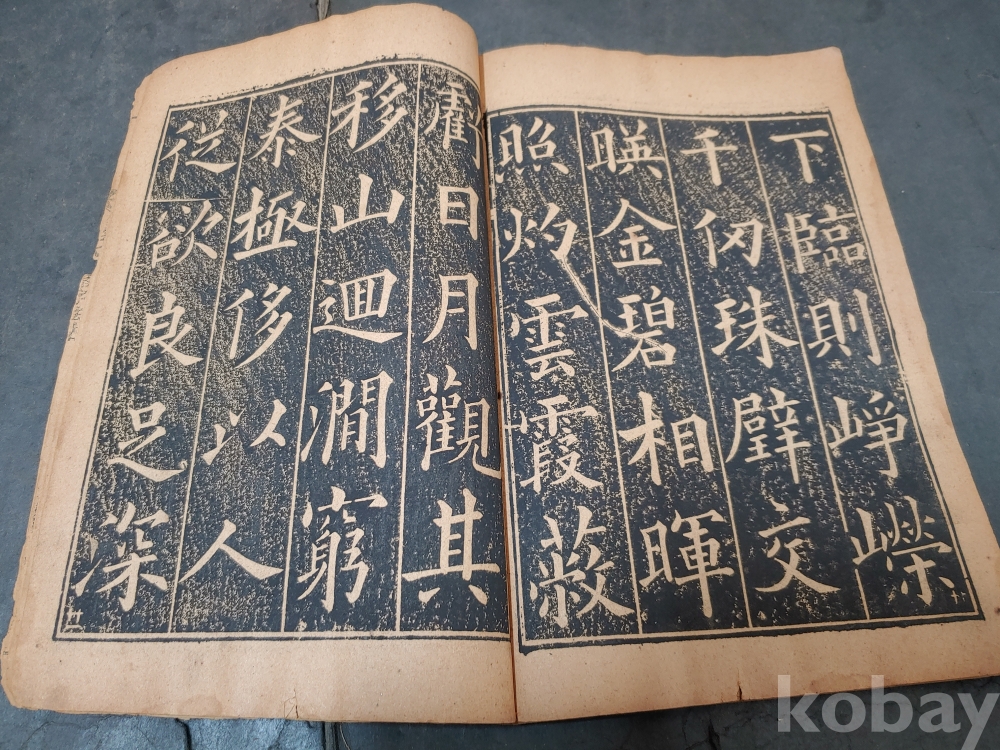 下臨則崢嶸
千仞珠璧交
暎金碧相暉
照灼雲霞蔽
虧日月觀其
移山迴澗窮
泰極侈以人
從欲良足深
kobay